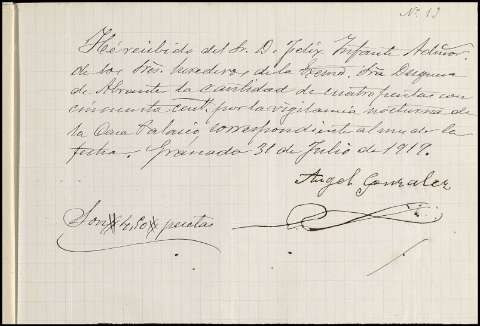 Nº 13
He recibido del Sr. D. Felix Infante Admor.
de los Sres. herederos de la Excma. Sra Duquesa
de Abrante la cantidad de cuatro pesetas con
cincuenta cents. por la vigilancia nocturna de
la Casa Palacio correspondiente al mes de la
fecha. Granada 31 de Julio de 1919.
Angel Gonzalez
Son # 4,50 # pesetas